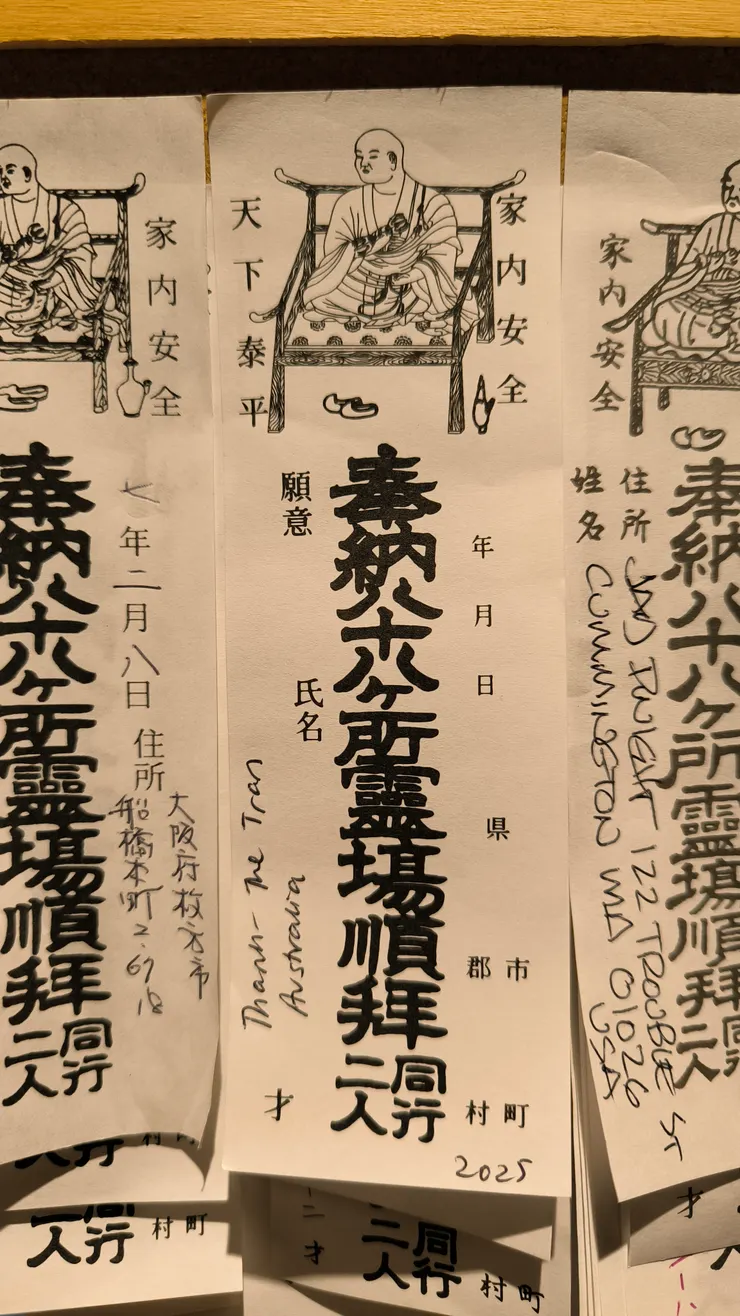 家内安全
七年二月八日
住所
大阪府枚方市
船橋本町2-67
18
奉納八十八ヶ所靈場順拜
同行
二人
家内安全
天下泰平
年月日
県
市
郡
町
村
奉納八十八ヶ所靈場順拜
同行
二人
願意
氏名
Thanh-The Tran
Australia
才
2025
家内安全
奉納八十八ヶ所靈場順拜
同
二人
住所
122 TROUBLE ST
姓名
CUMMINGTON MA 01026
USA
才
町
村
同行
二人
町
村
同行
二人
才